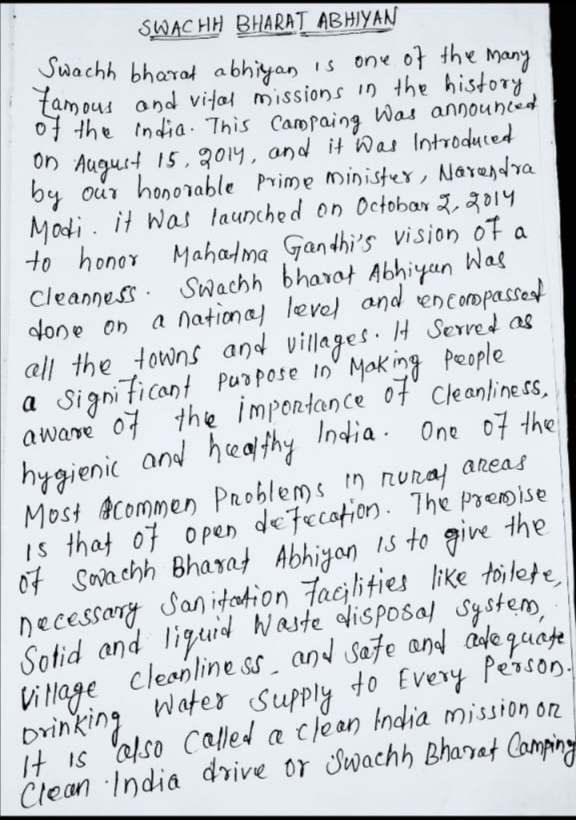 SWACHH BHARAT ABHIYAN
Swachh bharat abhiyan is one of the many
famous and vital missions in the history
of the India. This Campaing was announced
on August 15, 2014, and it was Introduced
by our honorable Prime minister, Narendra
Modi. it was launched on October 2, 2014
to honor Mahatma Gandhi's vision of a
Cleanness. Swachh bharat Abhiyan Was
done on a national level and encompassed
all the towns and villages. It Served as
a significant purpose in Making people
aware of the importance of Cleanliness,
hygienic and healthy India. One of the
Most commen Problems in rural areas
is that of open defecation. The premise
of Swachh Bharat Abhiyan is to give the
necessary Sanitation facilities like toilete,
Solid and liquid Waste disposal system,
Village Cleanliness, and safe and adequate
Drinking Water Supply to Every Person.
It is also Called a clean India mission or
Clean India drive or Swachh Bharat Camping